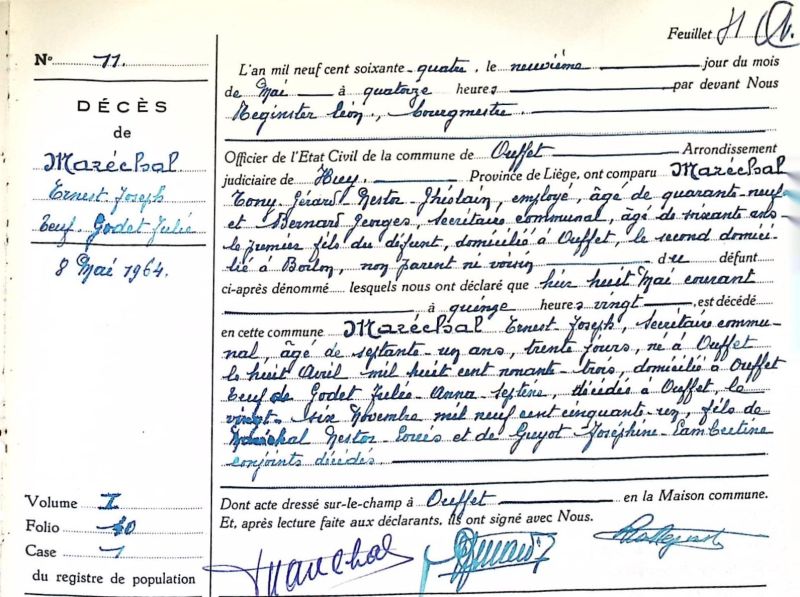 Feuillet 11
N° 11.
DÉCÈS
de
Maréchal
Ernest Joseph
Veuf Godet Julie
8 Mai 1964.
Volume I
Folio 40
Case 1
du registre de population
L'an mil neuf cent soixante-quatre, le neuvième jour du mois
de Mai à quatorze heures par devant Nous
Reginster Léon, bourgmestre
Officier de l'Etat Civil de la commune de Ouffet Arrondissement
judiciaire de Huy. Province de Liège, ont comparu Maréchal
Tony Gérard Nestor Ghislain, employé, âgé de quarante-neuf
et Bernard Georges, secrétaire communal, âgé de soixante ans
le premier fils du défunt, domicilié à Ouffet, le second domici-
lié à , non parent ni voisin du défunt
ci-après dénommé lesquels nous ont déclaré que hier huit Mai courant
, à quinze heures vingt, est décédé
en cette commune Maréchal Ernest Joseph, secrétaire commu-
nal, âgé de septante-un ans, trente jours, né à Ouffet
le huit Avril mil huit cent nonante-trois, domicilié à Ouffet
Veuf de Godet Julie-Anna-, décédée à Ouffet, le
vingt-six Novembre mil neuf cent cinquante-un, fils de
Maréchal Nestor-Louis et de Guyot Joséphine-Lambertine
conjoints décédés
Dont acte dressé sur-le-champ à Ouffet en la Maison commune.
Et, après lecture faite aux déclarants, ils ont signé avec Nous.
Maréchal